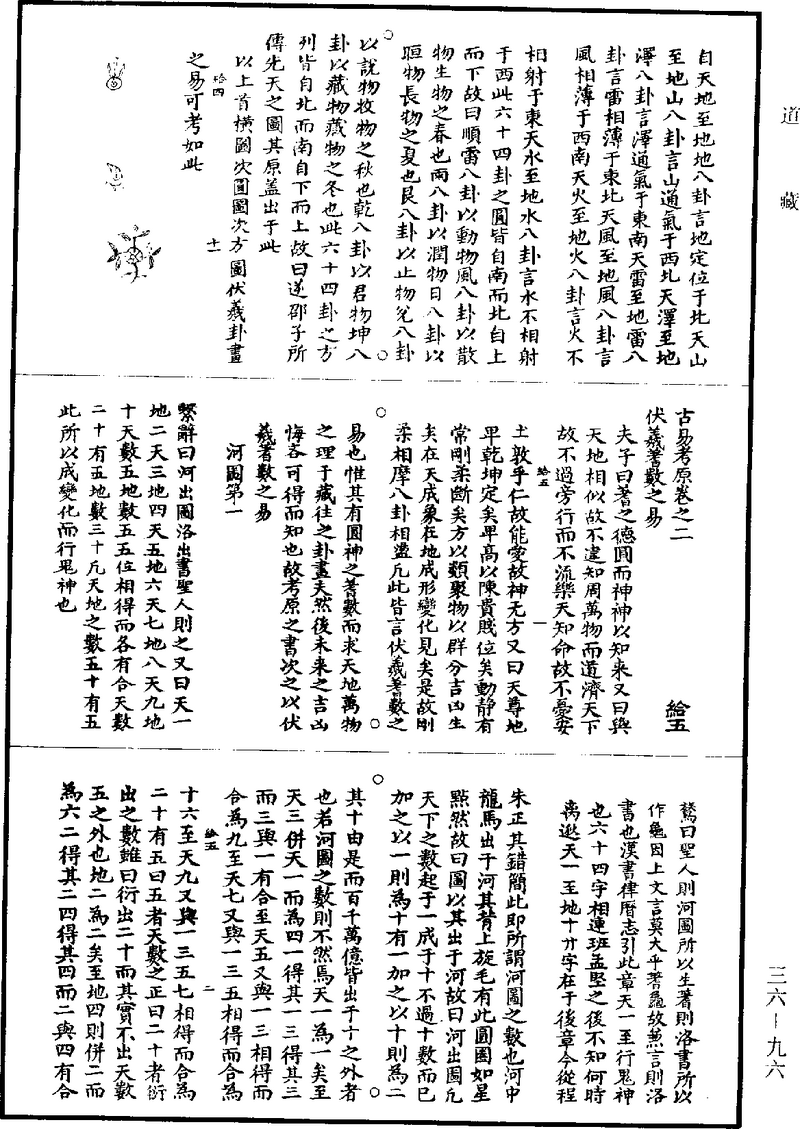 道藏
自天地至地地八卦言地定位于北天山
至地山八卦言山通氣于西北天澤至地
澤八卦言澤通氣于東南天雷至地雷八
卦言雷相薄于東北天風至地風八卦言
風相薄于西南天火至地火八卦言火不
相射于東天水至地水八卦言水不相射
于西此六十四卦之圓皆自南而北自上
而下故曰順雷八卦以動物風八卦以散
物生物之春也雨八卦以潤物日八卦以
晅物長物之夏也艮八卦以止物兌八卦
以說物收物之秋也乾八卦以君物坤八
卦以藏物藏物之冬也此六十四卦之方
列皆自北而南自下而上故曰逆邵子所
傳先天之圖其原蓋出于此
以上首橫圖次圓圖次方圖伏羲卦畫
給四
十一
之易可考如此
古易考原卷之二
給五
伏羲蓍數之易
夫子曰蓍之德圓而神神以知來又曰與
天地相似故不違知周萬物而道濟天下
故不過旁行而不流樂天知命故不憂安
給五
一
土敦乎仁故能愛故神无方又曰天尊地
卑乾坤定矣卑高以陳貴賤位矣動靜有
常剛柔斷矣方以類聚物以群分吉凶生
矣在天成象在地成形變化見矣是故剛
柔相摩八卦相盪凡此皆言伏羲蓍數之
易也惟其有圓神之蓍數而求天地萬物
之理于藏往之卦畫夫然後未來之吉凶
悔吝可得而知也故考原之書次之以伏
羲蓍數之易
河圖第一
繫辭曰河出圖洛出書聖人則之又曰天一
地二天三地四天五地六天七地八天九地
十天數五地數五五位相得而各有合天數
二十有五地數三十凡天地之數五十有五
此所以成變化而行鬼神也
鶩曰聖人則河圖所以生蓍則洛書所以
作龜因上文言莫大乎蓍龜故無言則洛
書也漢書律曆志引此章天一至行鬼神
也六十四字相連班孟堅之後不知何時
离逖天一至地十廿字在于後章今從程
朱正其錯簡此即所謂河圖之數也河中
龍馬出于河其背上旋毛有此圓圈如星
點然故曰圖以其出于河故曰河出圖凡
天下之數起于一成于十不過十數而已
加之以一則為十有一加之以十則為二
其十由是而百千萬億皆出于十之外者
也若河圖之數則不然焉天一為一矣至
天三併天一而為四一得其一三得其三
而三與一有合至天五又與一三相得而
合為九至天七又與一三五相得而合為
給五
二
十六至天九又與一三五七相得而合為
二十有五曰五者天數之正曰二十者衍
出之數雖曰衍出二十而其實不出天數
五之外也地二為二矣至地四則併二而
為六二得其二四得其四而二與四有合
三六—九六